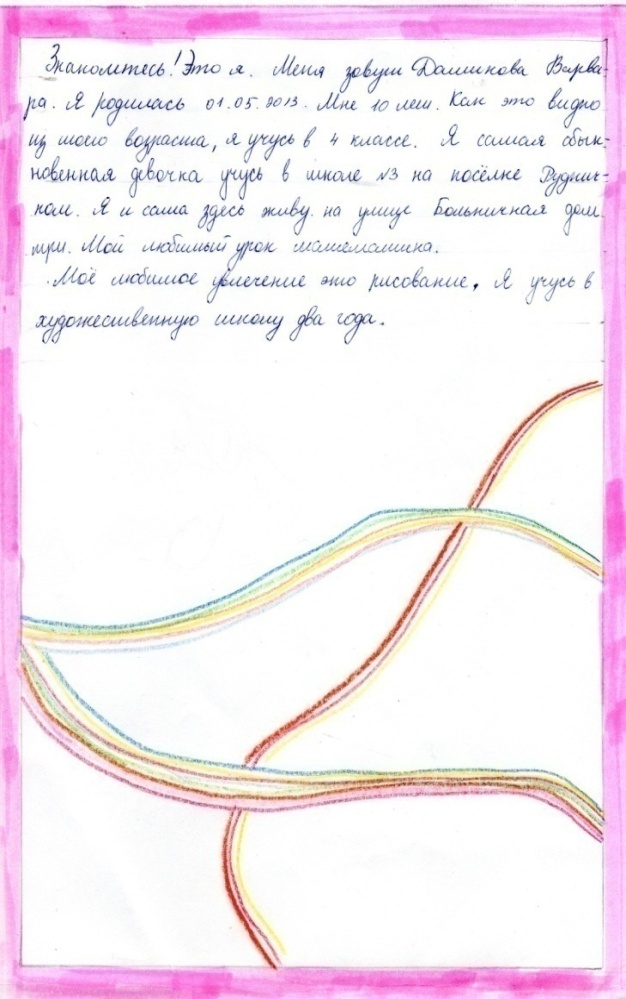 Знакомтесь! Это я. Меня зовут Долиикова Варва-
ра. Я родилась 01.05.2013. Мне 10 лет. Как это видно
из моего возраста, я учусь в 4 классе. Я самая обык-
новенная девочка учусь в школе №3 на посёлке Руднич-
ном. Я и сама здесь живу на улице Больничная дом
три. Мой любимый урок математика.
Моё любимое увлечение это рисование. Я учусь в
художественную школу два года.